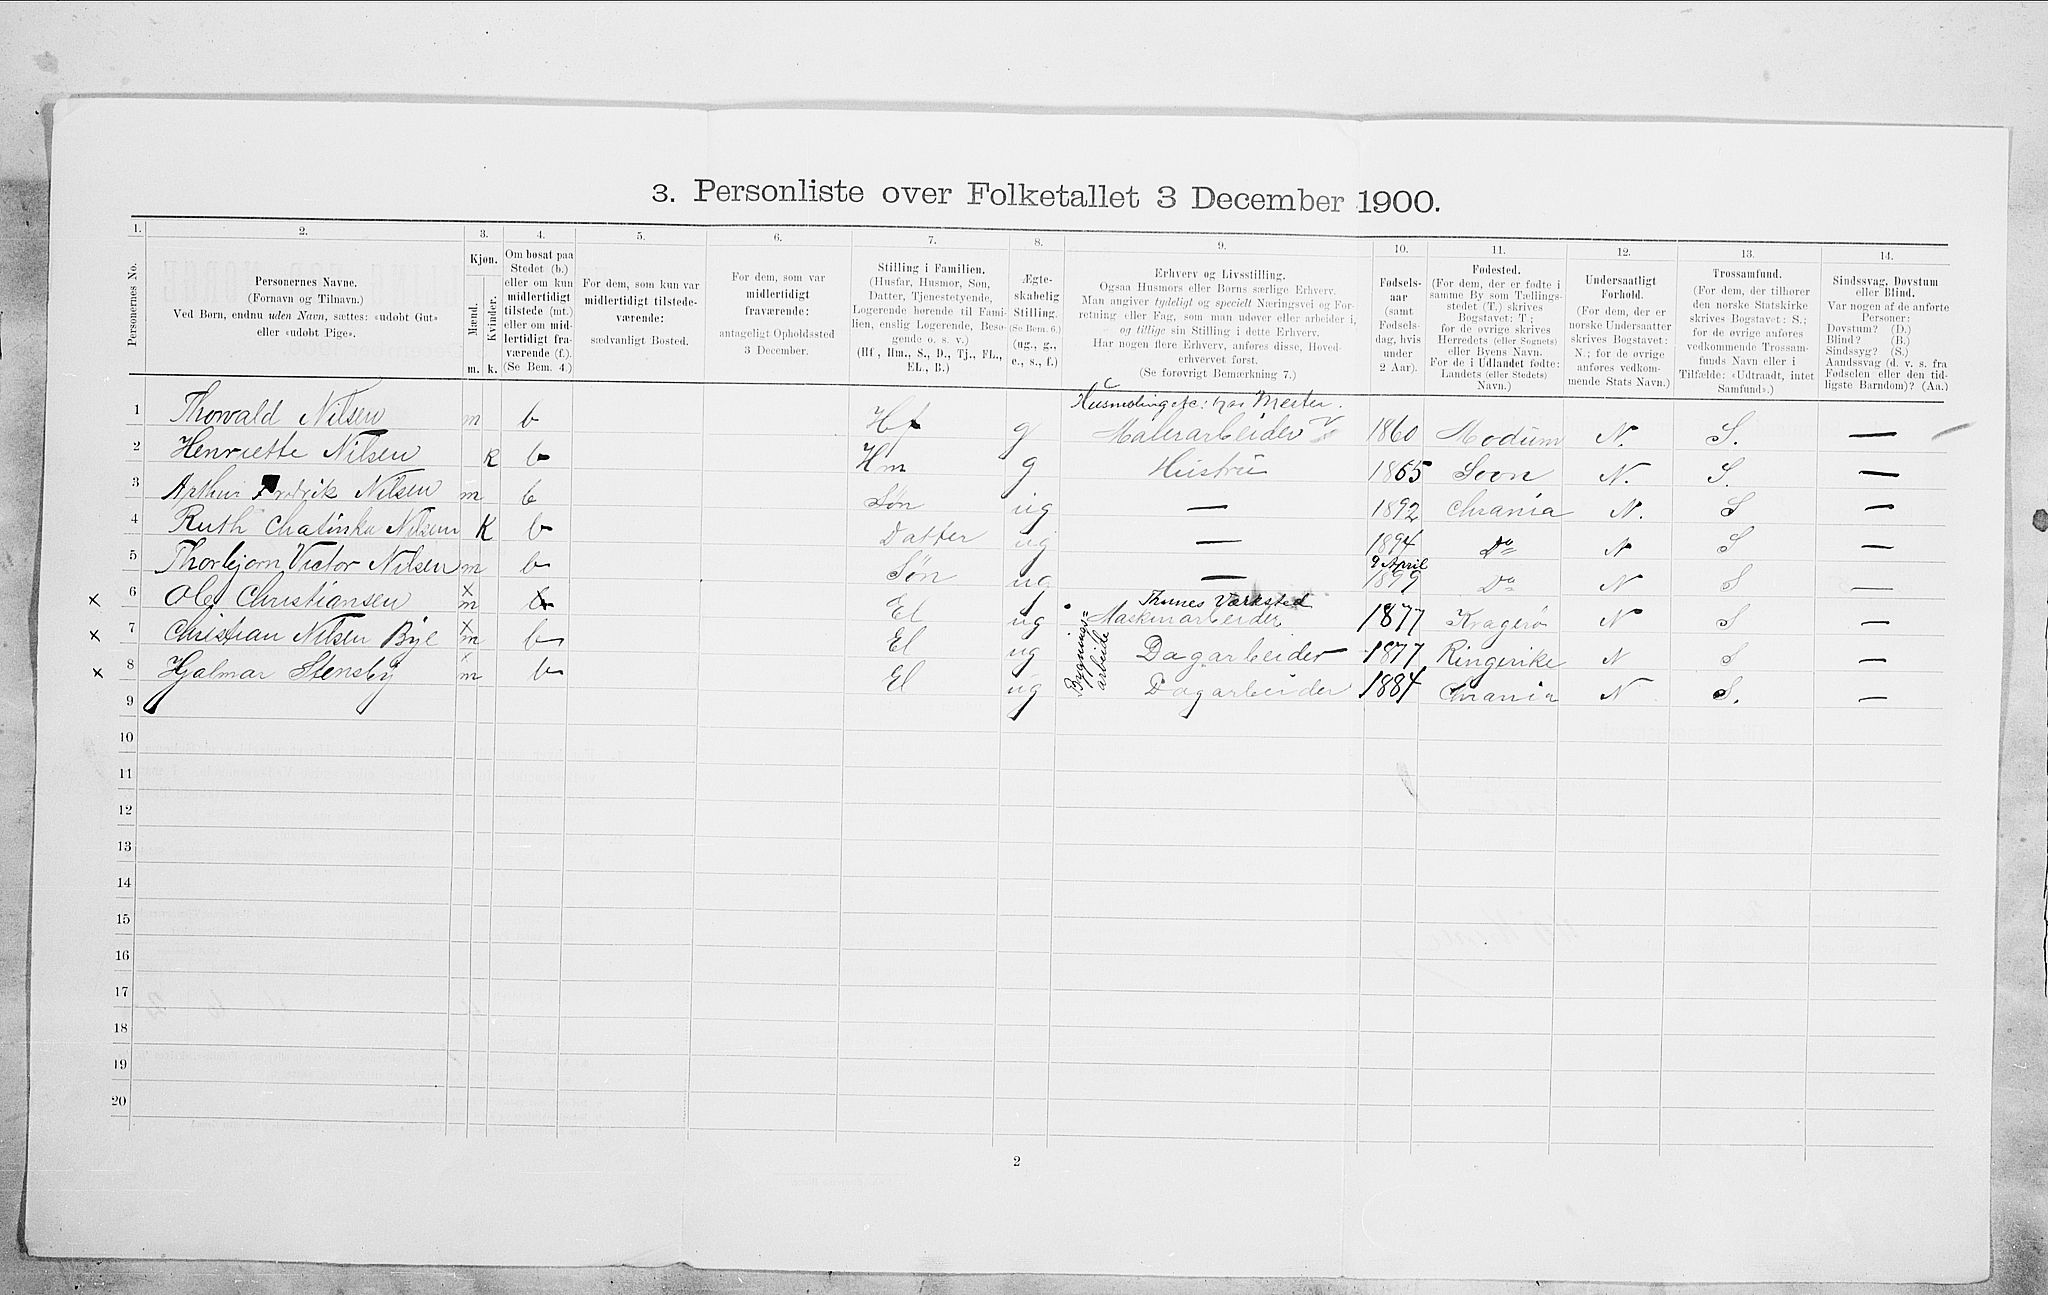 3. Personliste over Folketallet 3 December 1900.
1. 2. 3. 4. 5. 6. 7. 8. 9. 10. 11. 12. 13. 14.
Personernes No.
Personernes Navne.
(Fornavn og Tilnavn.)
Ved Børn, endnu uden Navn, sættes: «udøbt Gut»
eller «udøbt Pige».
Kjøn.
Mænd.
Kvinder.
m. k.
Om bosat paa
Stedet (b.)
eller om kun
midlertidigt
tilstede (mt.)
eller om mid-
lertidigt fra-
værende (f.).
(Se Bem. 4.)
For dem, som kun var
midlertidigt tilstede-
værende:
sædvanligt Bosted.
For dem, som var
midlertidigt
fraværende:
antageligt Opholdssted
3 December.
Stilling i Familien.
(Husfar, Husmor, Søn,
Datter, Tjenestetyende,
Logerende hørende til Fami-
lien, enslig Logerende, Besø-
gende o. s. v.)
(Hf., Hm., S., D., Tj., FL.,
EL., B.)
Ægte-
skabelig
Stilling.
(Se Bem. 6.)
(ug., g.,
e., s., f.)
Erhverv og Livsstilling.
Ogsaa Husmors eller Børns særlige Erhverv.
Man angiver tydeligt og specielt Næringsvei og For-
retning eller Fag, som man udøver eller arbeider i,
og tillige sin Stilling i dette Erhverv.
Har nogen flere Erhverv, anføres disse, Hoved-
erhvervet først.
(Se forøvrigt Bemærkning 7.)
Fødsels-
aar
(samt
Fødsels-
dag, hvis
under
2 Aar).
Fødested.
(For dem, der er fødte i
samme By som Tællings-
stedet (T.) skrives
Bogstavet: T;
for de øvrige skrives
Herredets (eller Sognets)
eller Byens Navn.
For de i Udlandet fødte:
Landets (eller Stedets)
Navn.)
Undersaatligt
Forhold.
(For dem, der er
norske Undersaatter
skrives Bogstavet:
N.; for de øvrige
anføres vedkom-
mende Stats Navn.)
Trossamfund.
(For dem, der tilhører
den norske Statskirke
skrives Bogstavet: S.;
for de øvrige anføres
vedkommende Trossam-
funds Navn eller i
Tilfælde: «Udtraadt, intet
Samfund».)
Sindssvag, Døvstum
eller Blind.
Var nogen af de anførte
Personer:
Døvstum? (D.)
Blind? (B.)
Sindssyg? (S.)
Aandssvag (d. v. s. fra
Fødselen eller den tid-
ligste Barndom)? (Aa.)
Mester.
1 Thorvald Nilsen m b Hf g Malerarbeider 1860 Modum N. S. —
2 Henriette Nilsen k b Hm g Hustru 1865 Soon N. S. —
3 Arthur Fredrik Nilsen m b Søn ug — 1892 Chrania N. S —
4 Ruth Chatinka Nilsen K b Datter ug — 1894 Do N S —
9 April
5 Thorbjørn Victor Nilsen m b Søn ug — 1899 Do N S —
Thunes Værksted
x 6 Ole Christiansen x m b El ug Maskinarbeider 1877 Kragerø N S —
Bygnings=
arbeide
x 7 Christian Nilsen Bye x m b El ug Dagarbeider 1877 Ringerike N S —
x 8 Hjalmar Stensby x m b El ug Dagarbeider 1884 Chrania N S. —
9
10
11
12
13
14
15
16
17
18
19
20
2